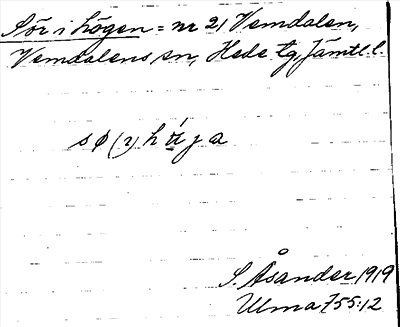 Sör i högen = nr 21 Vemdalen,
Vemdalens sn, Hede tg, Jämtl. l.
sø(r)hǿja
S. Åsander 1919
Ulma 755:12